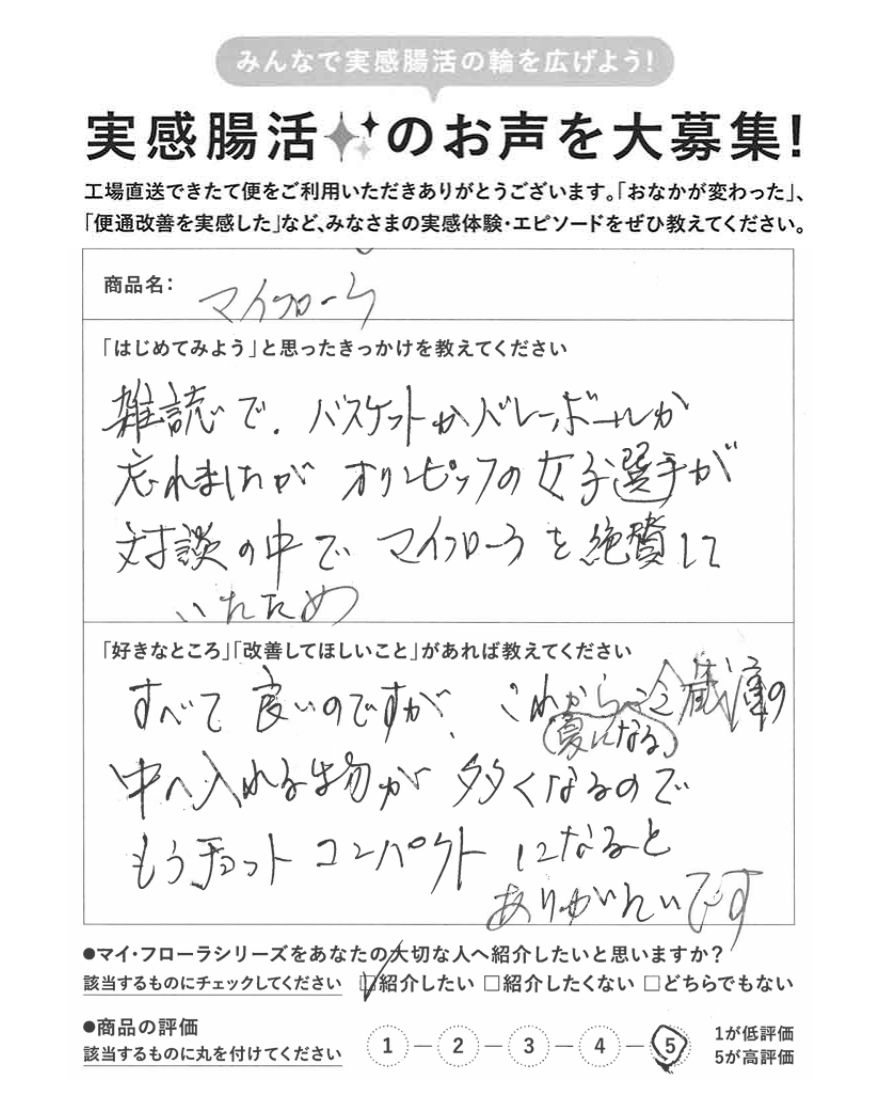 みんなで実感腸活の輪を広げよう!
実感腸活のお声を大募集!
工場直送できたて便をご利用いただきありがとうございます。「おなかが変わった」、
「便通改善を実感した」など、みなさまの実感体験・エピソードをぜひ教えてください。
商品名: マイフローラ
「はじめてみよう」と思ったきっかけを教えてください
雑誌で、バスケットかバレーボールか
忘れましたが オリンピックの女子選手が
対談の中で マイフローラを絶賛して
いたため
「好きなところ」「改善してほしいこと」があれば教えてください
すべて良いのですが、これから冷蔵庫の
(夏になる)
中へ入れる物が多くなるので
もうチョット コンパクトになると
ありがたいです
●マイ・フローラシリーズをあなたの大切な人へ紹介したいと思いますか?
該当するものにチェックしてください □紹介したい □紹介したくない □どちらでもない
●商品の評価
該当するものに丸を付けてください
1 - 2 - 3 - 4 - 5
1が低評価
5が高評価